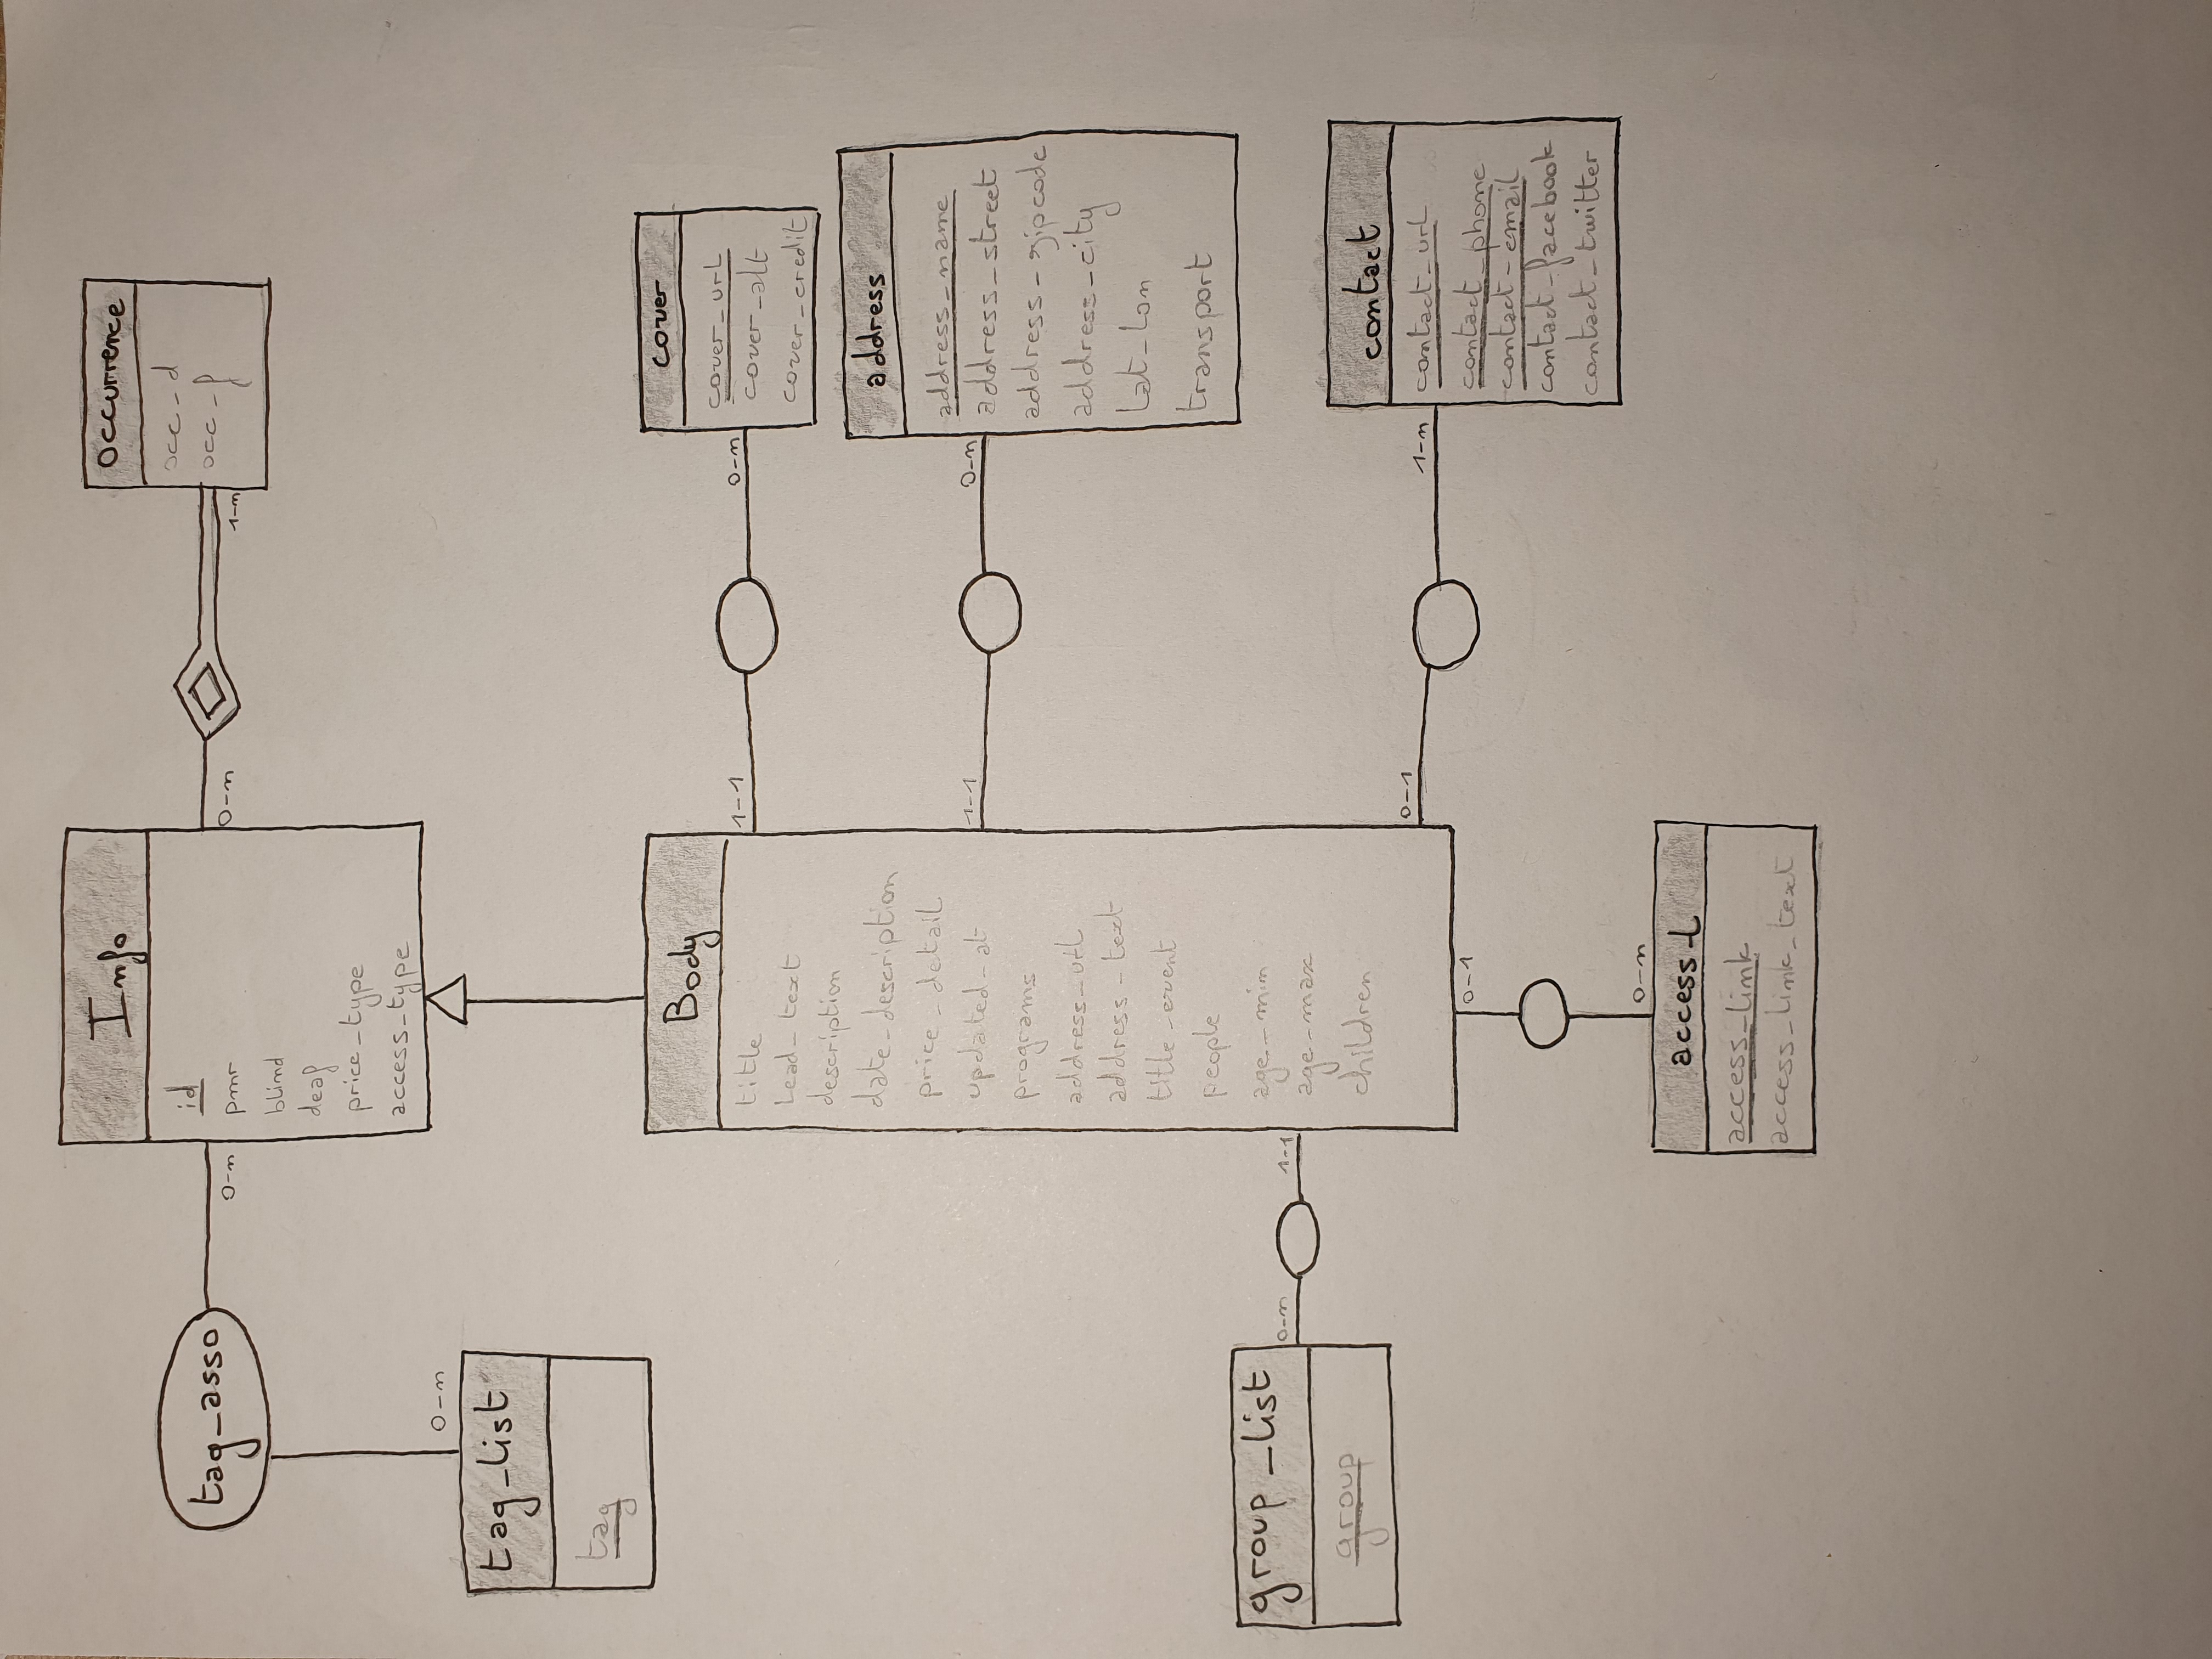 Info
id
pmr
blind
deaf
price_type
access_type
occurrence
occ_d
occ_f
tag_asso
0-n
0-n
1-n
0-n
tag_list
tag
Body
title
Lead_text
description
date_description
price_detail
updated_at
programs
address_url
address_text
title_event
people
age_min
age_max
children
1-1
0-n
cover
cover_url
cover_alt
cover_credit
1-1
0-n
address
address_name
address_street
address_zipcode
address_city
lat_lon
transport
group_list
group
0-n
1-1
0-1
1-n
contact
contact_url
contact_phone
contact_email
contact_facebook
contact_twitter
0-1
0-n
access_l
access_link
access_link_text